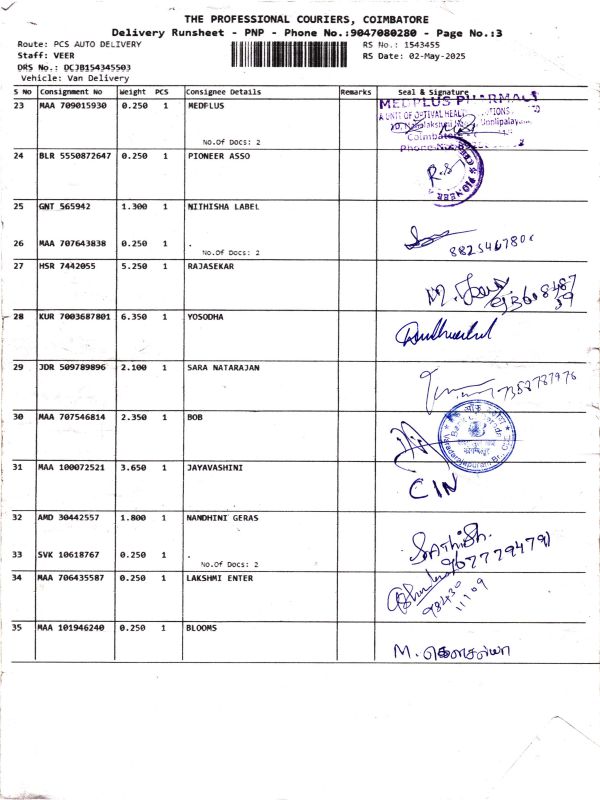 THE PROFESSIONAL COURIERS, COIMBATORE
Delivery Runsheet - PNP - Phone No.:9047080280 - Page No.:3
Route: PCS AUTO DELIVERY
RS No.: 1543455
Staff: VEER
RS Date: 02-May-2025
DRS No.: DCJB154345503
Vehicle: Van Delivery
S No Consignment No Weight PCS Consignee Details Remarks Seal & Signature
23 MAA 709015930 0.250 1 MEDPLUS
MEDPLUS PHARMACY
No.Of Docs: 2
Coimbatore
24 BLR 5550872647 0.250 1 PIONEER ASSO
R.S
PIONEER
25 GNT 565942 1.300 1 NITHISHA LABEL
26 MAA 707643838 0.250 1 .
No.Of Docs: 2
27 HSR 7442055 5.250 1 RAJASEKAR
28 KUR 7003687801 6.350 1 YOSODHA
29 JDR 509789896 2.100 1 SARA NATARAJAN
7358787976
30 MAA 707546814 2.350 1 BOB
31 MAA 100072521 3.650 1 JAYAVASHINI
CIN
32 AMD 30442557 1.800 1 NANDHINI GERAS
SATHISH.
9677794791
33 SVK 10618767 0.250 1 .
No.Of Docs: 2
34 MAA 706435587 0.250 1 LAKSHMI ENTER
98430
11109
35 MAA 101946240 0.250 1 BLOOMS
M. கௌசல்யா